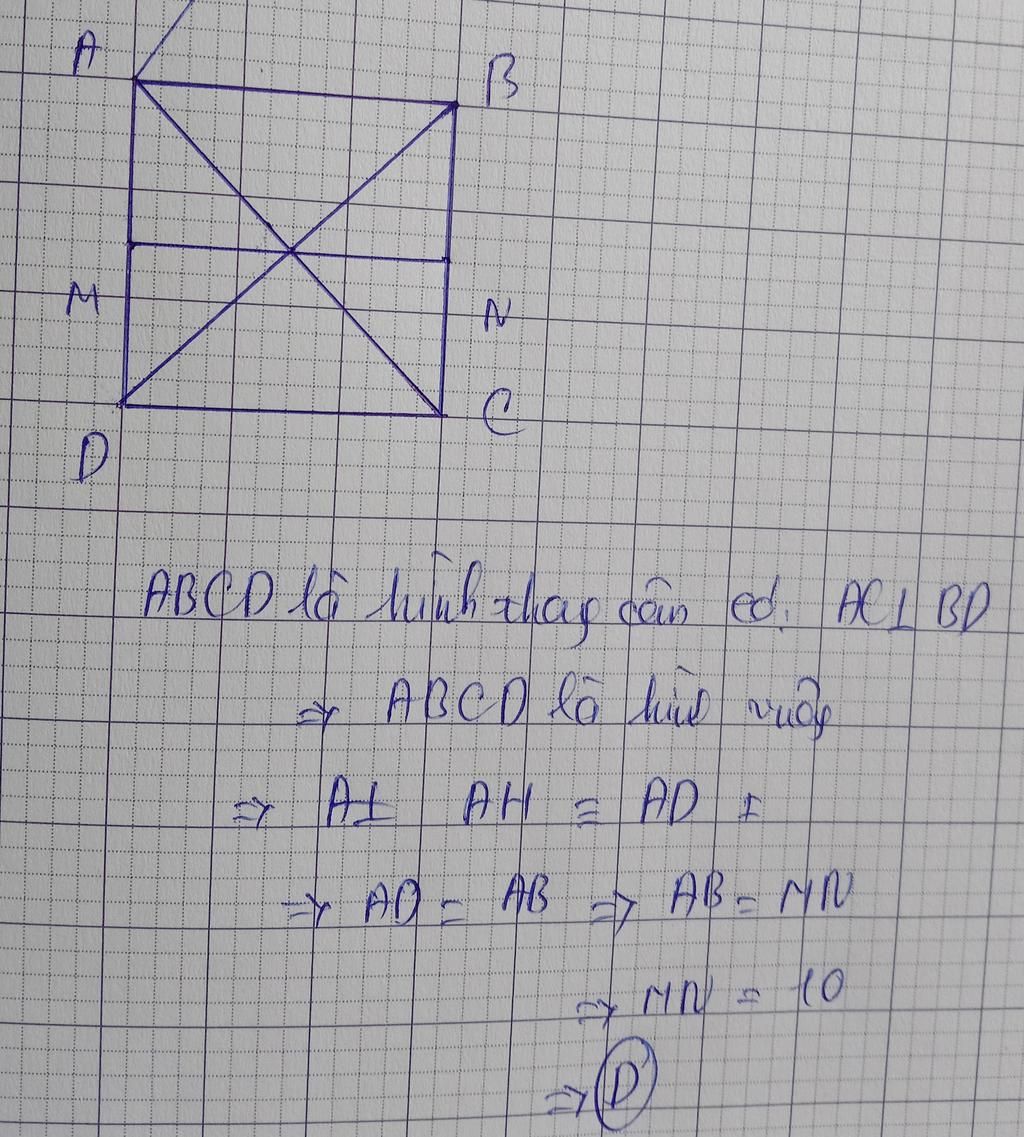 A
B
M
N
D
C
ABCD là hình thag cân có: AC ⊥ BD
⇒ ABCD là hìh vuôg
⇒ AH = AD =
⇒ AD = AB ⇒ AB = MN
⇒ MN = 10
⇒ D